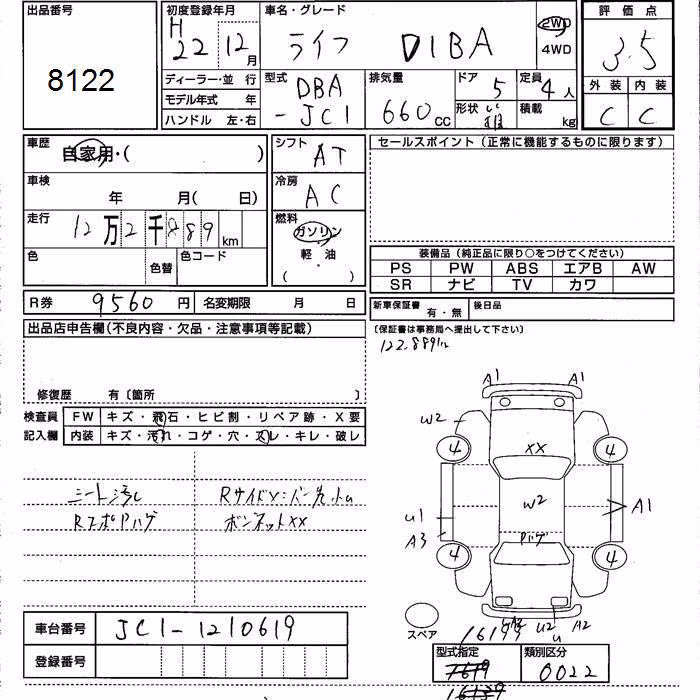 出品番号
8122
初度登録年月
H 22 12月
車名・グレード
ライフ DIBA
2WD
4WD
評価点
3.5
外装 内装
C C
ディーラー・並 行
モデル年式 年
ハンドル 左・右
型式
DBA
-JC1
排気量
660 CC
ドア 5
形状
定員 4人
積載 kg
車歴
自家用・( )
車検
年 月( 日)
走行
12万2千889 km
色
色替
色コード
シフト
AT
冷房
AC
燃料
ガソリン
軽・油
( )
セールスポイント(正常に機能するものに限ります)
装備品(純正品に限り○をつけてください)
PS PW ABS エアB AW
SR ナビ TV カワ
R券 9560 円 名変期限 月 日
新車保証書 有・無 後日品
(保証書は事務局へ提出して下さい)
122.889km
出品店申告欄(不良内容・欠品・注意事項等記載)
修復歴 有〔箇所 〕
検査員
記入欄
FW キズ・飛石・ヒビ割・リペア跡・X要
内装 キズ・汚れ・コゲ・穴・スレ・キレ・破レ
シート汚レ
RスポPハゲ
ボンネットXX
A1 A1
W2
4 4
XX
W2
U1
A3
A1
Pハゲ
4 4
U2 A2
U
スペア
車台番号 JC1-1210619
登録番号
16199
型式指定
類別区分
0022